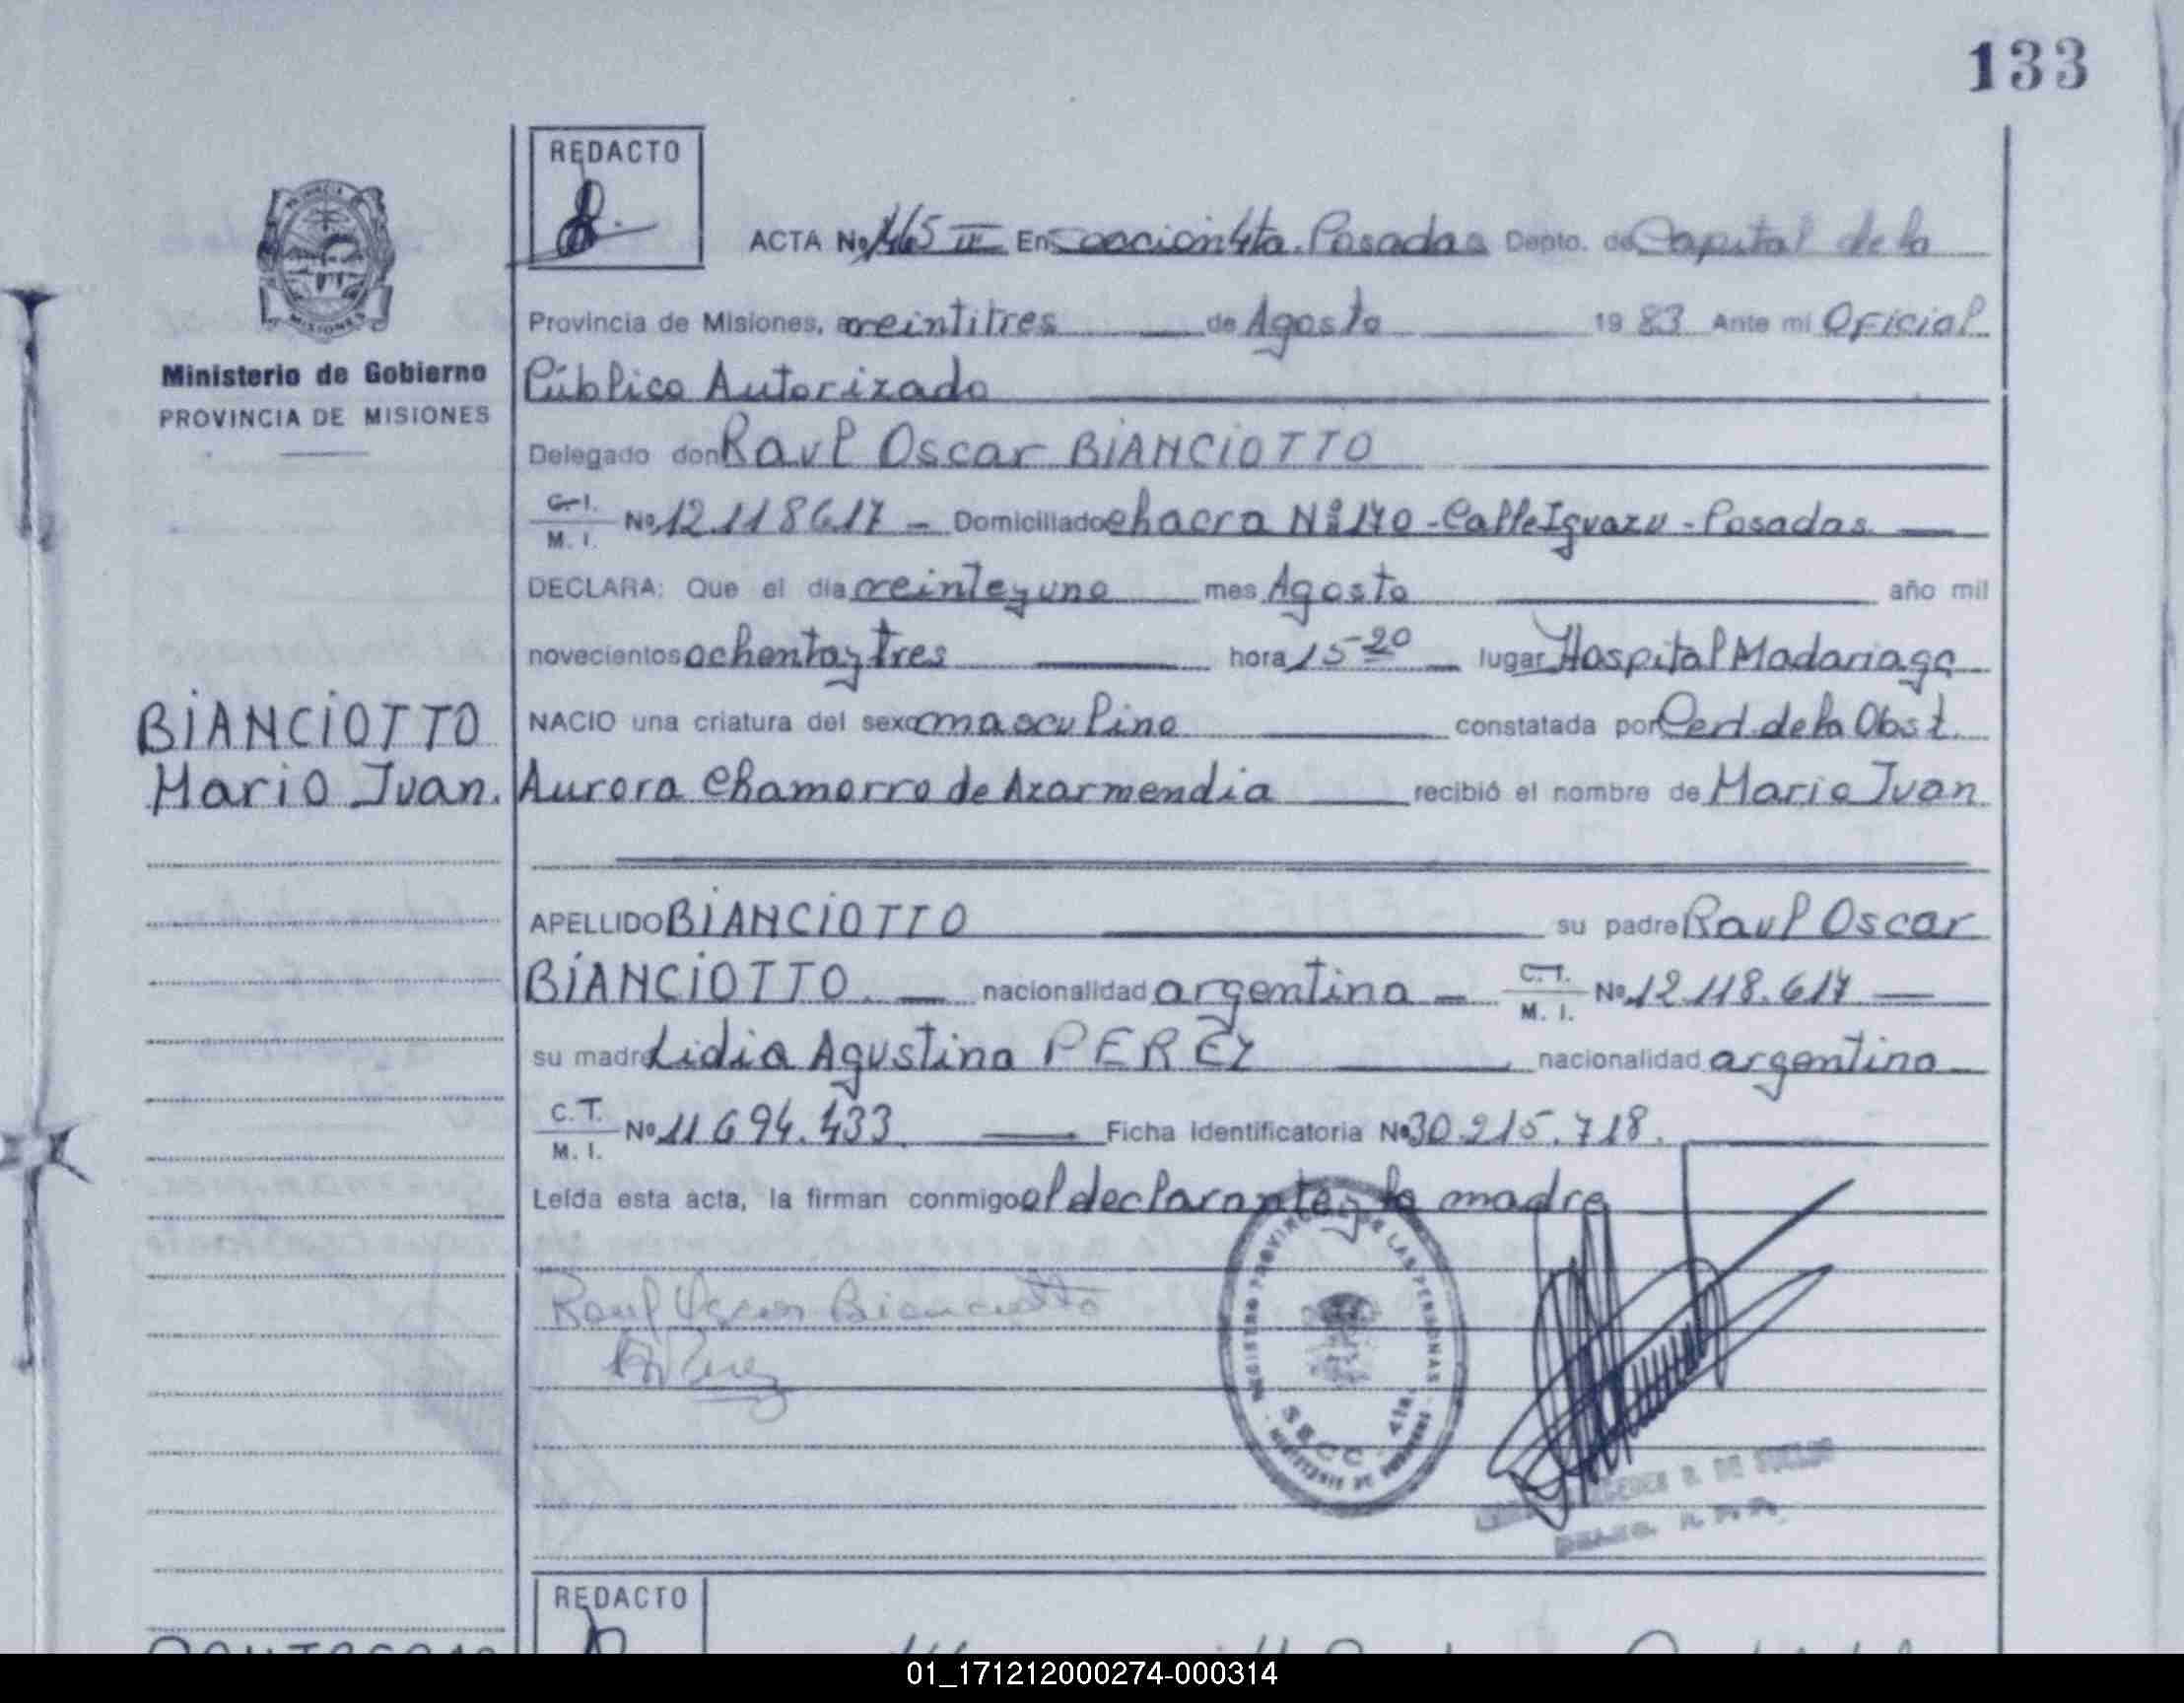 133
REDACTO
ACTA No 465 II En Seccion 4ta. Posadas Depto. de Capital de la
Provincia de Misiones, a veintitres de Agosto 19 83 Ante mi Oficial
Ministerio de Gobierno
PROVINCIA DE MISIONES
Público Autorizado
Delegado don Raul Oscar BIANCIOTTO
C. I. M. I. No 12.118.617 - Domiciliado chacra Nº 170 - Calle Iguazu - Posadas
DECLARA: Que el día veinteyuno mes Agosto año mil
novecientos ochenta y tres hora 15-20 lugar Hospital Madariaga
BIANCIOTTO
Mario Ivan.
NACIO una criatura del sexo masculino constatada por Cert. de la Obst.
Aurora Chamorro de Azarmendia recibió el nombre de Mario Ivan
APELLIDO BIANCIOTTO su padre Raul Oscar
BIANCIOTTO. nacionalidad argentina - C. I. M. I. No 12.118.617
su madre Lidia Agustina PEREZ nacionalidad argentina
C. I. M. I. No 11.694.433 Ficha Identificatoria No 30.215.718.
Leída esta acta, la firman conmigo el declarante y la madre
Raul Oscar Bianciotto
REGISTRO PROVINCIAL DE LAS PERSONAS
MINISTERIO DE GOBIERNO
REDACTO
01_171212000274-000314